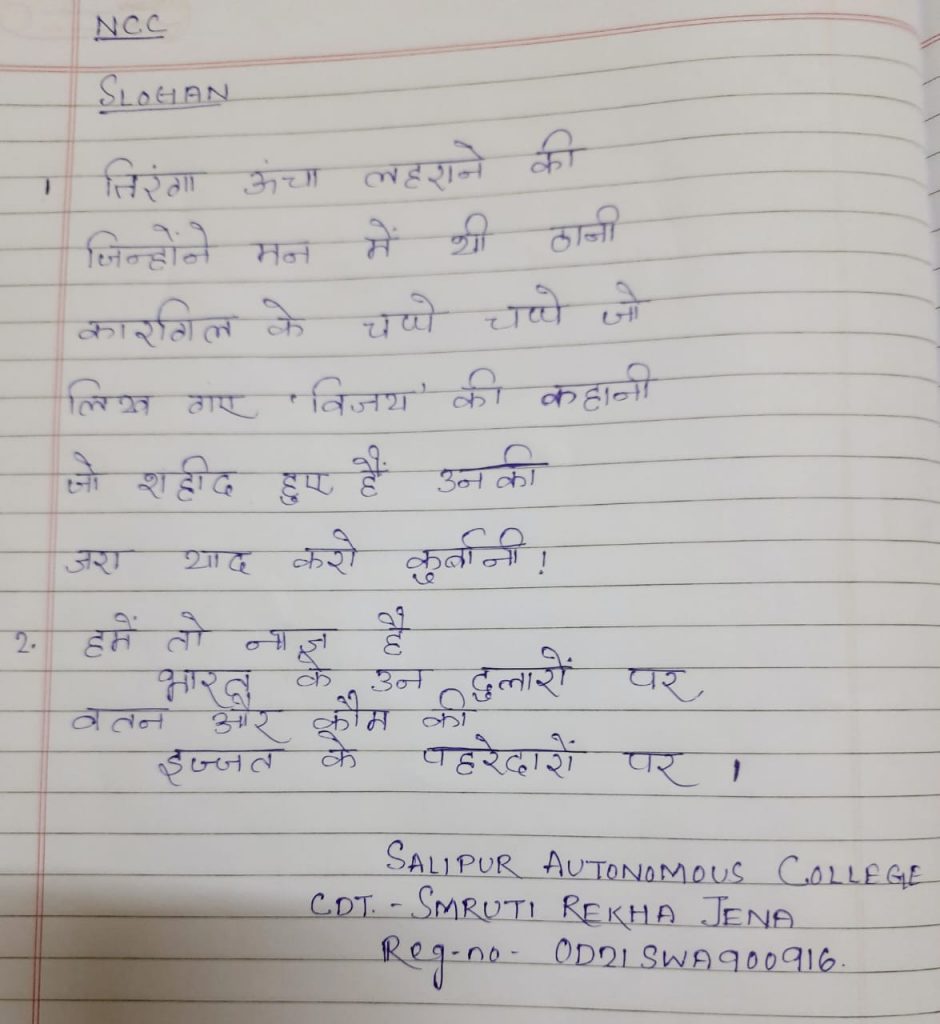 NCC
SLOGAN
1 तिरंगा ऊंचा लहराने की
जिन्होंने मन में थी ठानी
कारगिल के चप्पे चप्पे जो
लिख गए 'विजय' की कहानी
जो शहीद हुए हैं उनकी
जरा याद करो कुर्बानी!
2. हमें तो नाज़ है
भारत के उन दुलारों पर
वतन और कौम की
इज्जत के पहरेदारों पर ।
SALIPUR AUTONOMOUS COLLEGE
CDT. - SMRUTI REKHA JENA
Reg-no - OD21SWA900916.